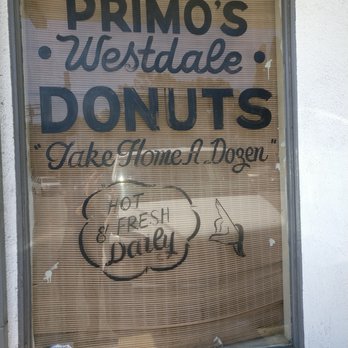 PRIMO'S
• Westdale •
DONUTS
"Take Home A.. Dozen"
HOT
& FRESH
Daily